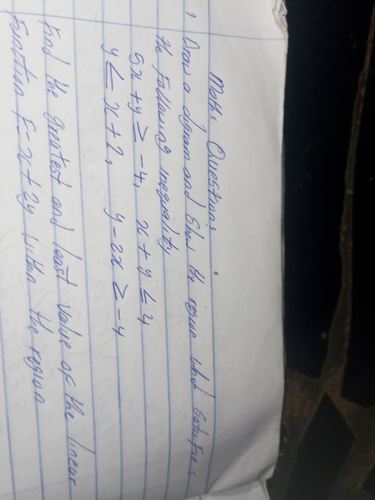 Maths Questions
1, Draw a digram and Show the region which satisfies
the following inequality
5x + y ≥ -4, x + y ≤ 4
y ≤ x + 2, y - 2x ≥ -4
Find the greatest and least value of the linear
Function F = x + 2y within the region